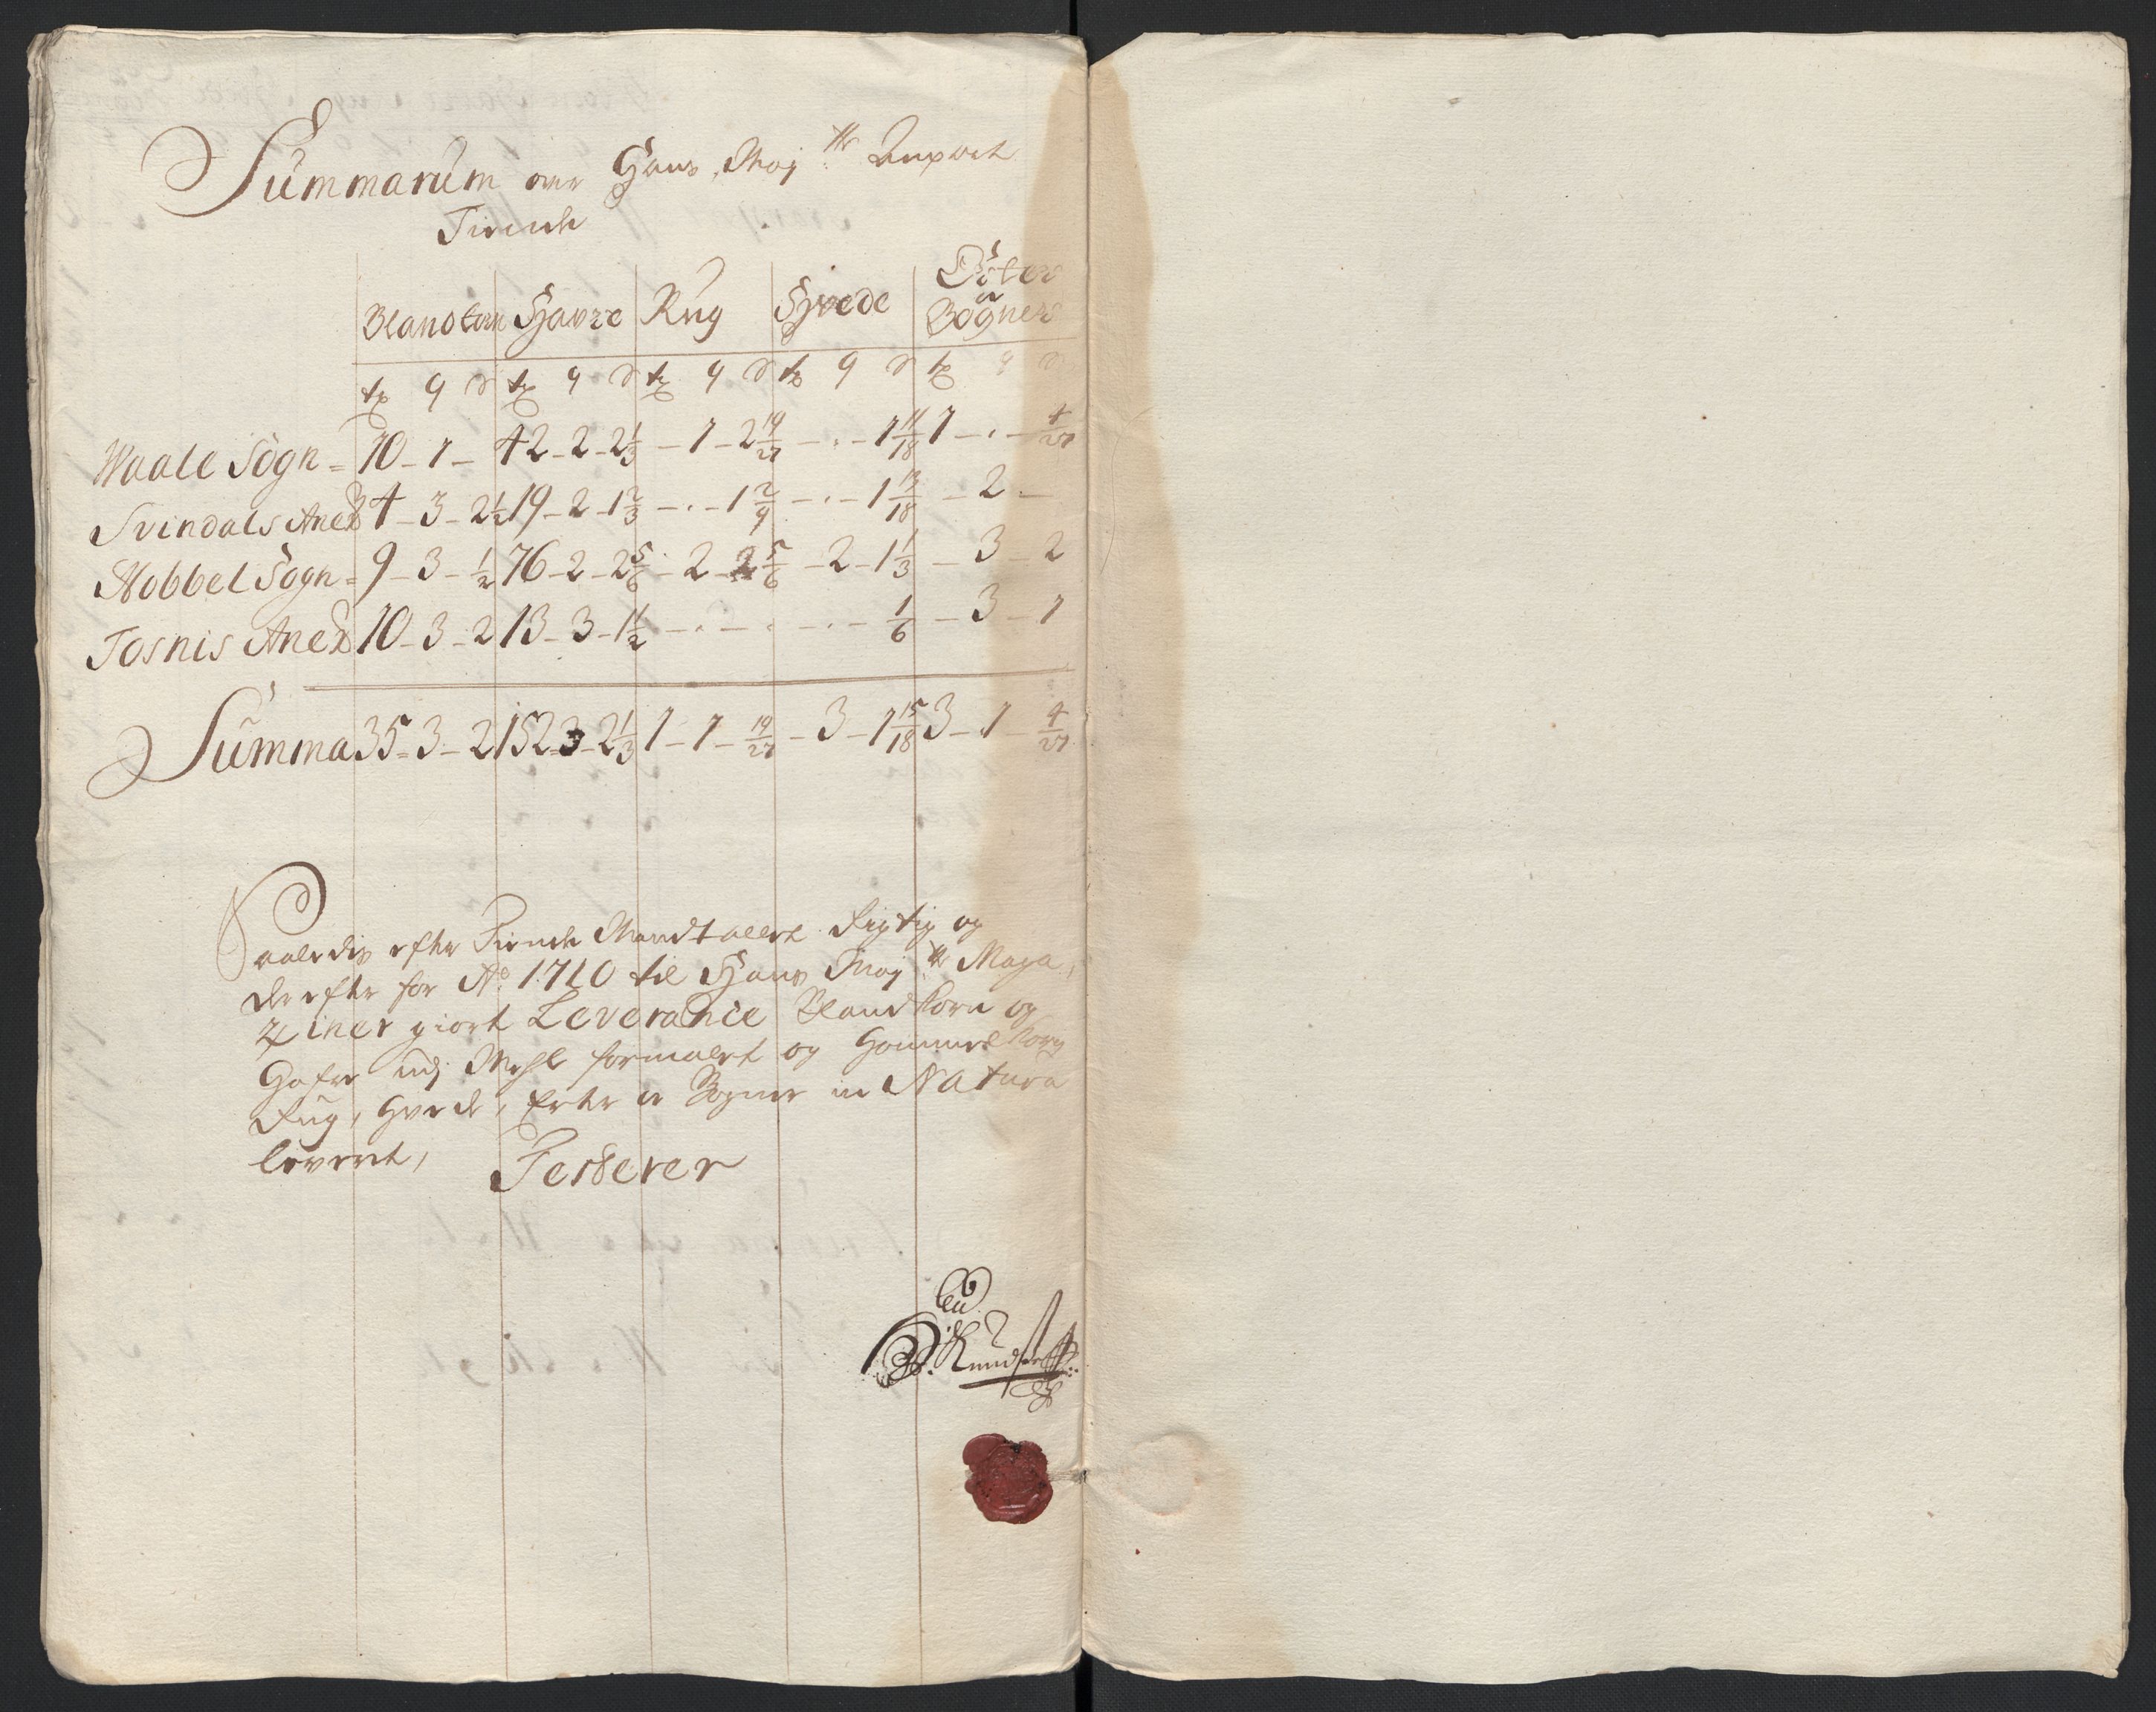 Summarum over Hans Maj:ttr Anpart
Tiende
Blandkorn Havre Rug Hvede Erter
a
Bøgner
tø q d tø q d tø q d tø q d tø q d
Waale Sogn = 10 - 1 - 42 - 2 - 2 1/3 - 1 - 2 19/27 - . - 1 11/18 1 - . - 4/27
Svindals Anex 4 - 3 - 2 1/2 19 - 2 - 1 2/3 - . - 1 2/9 - . - 1 13/18 - 2 -
Hobbel Sogn = 9 - 3 - 1/2 76 - 2 - 2 5/6 - 2 - 2 5/6 - 2 - 1 1/3 - 3 - 2
Tosnis Anex 10 - 3 - 2 13 - 3 - 1 1/2 - . - . - . - 1/6 - 3 - 1
Summa 35 = 3 - 2 152 = 3 - 2 1/3 1 - 1 - 19/27 - 3 - 1 15/18 3 - 1 4/27
Saaledis efter Tiende Mandtallet Rigtig og
derefter for Ao: 1710 til Hans Maj:tt Maga
ziner giort Leverance Blandkorn og
Hafre udj Mehl formalet og Hommelkorn
Rug, Hvede, Erter a Bøgner in Natura
leveret, Testerer
Knudsen